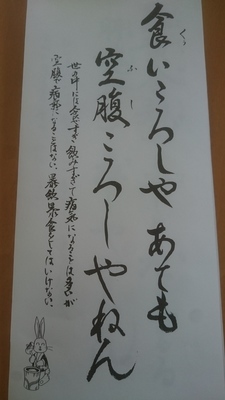 くう
食いころしや あても
ふし
空腹ころしやねん
世の中には食べすぎ飲みすぎで病気になることは多いが
空腹で病気になることはない、暴飲暴食をしてはいけない。